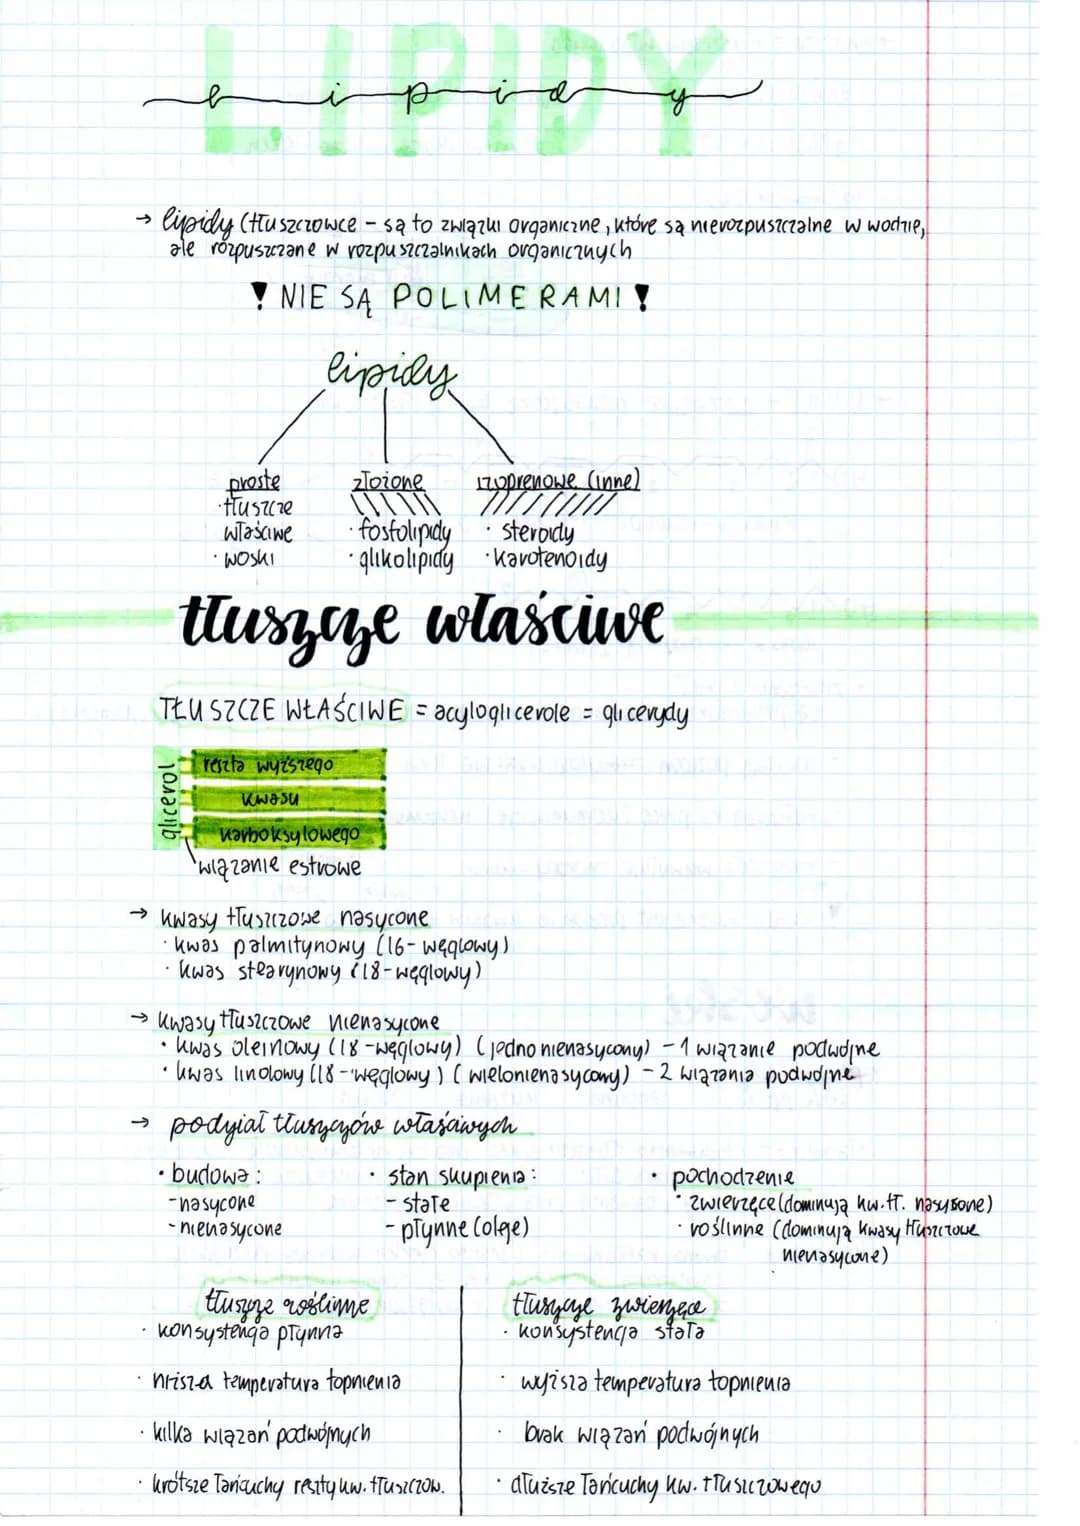 LIPIDY
lipidy
→ lipidy (tłuszczowce - są to związki organiczne, które są nierozpuszczalne w wodzie,
ale rozpuszczane w rozpuszczalnikach organicznych
! NIE SĄ POLIMERAMI !
lipidy
proste złożone izoprenowe (inne)
· tłuszcze
właściwe · fosfolipidy · steroidy
· woski · glikolipidy · karotenoidy
tłuszcze właściwe
TŁUSZCZE WŁAŚCIWE = acyloglicerole = glicerydy
glicerol
reszta wyższego
kwasu
karboksylowego
wiązanie estrowe
→ kwasy tłuszczowe nasycone
· kwas palmitynowy (16-węglowy)
· kwas stearynowy (18-węglowy)
→ kwasy tłuszczowe nienasycone
• kwas oleinowy (18-węglowy) (jednonienasycony) - 1 wiązanie podwójne
• kwas linolowy (18-węglowy) (wielonienasycony) - 2 wiązania podwójne
→ podział tłuszczów właściwych
• budowa: • stan skupienia: • pochodzenie
- nasycone - stałe • zwierzęce (dominują kw. tł. nasycone)
- nienasycone - płynne (oleje) · roślinne (dominują kwasy tłuszczowe
nienasycone)
tłuszcze roślinne tłuszcze zwierzęce
· konsystencja płynna · konsystencja stała
· niższa temperatura topnienia · wyższa temperatura topnienia
· kilka wiązań podwójnych · brak wiązań podwójnych
· krótsze łańcuchy reszty kw. tłuszczow. · dłuższe łańcuchy kw. tłuszczowego